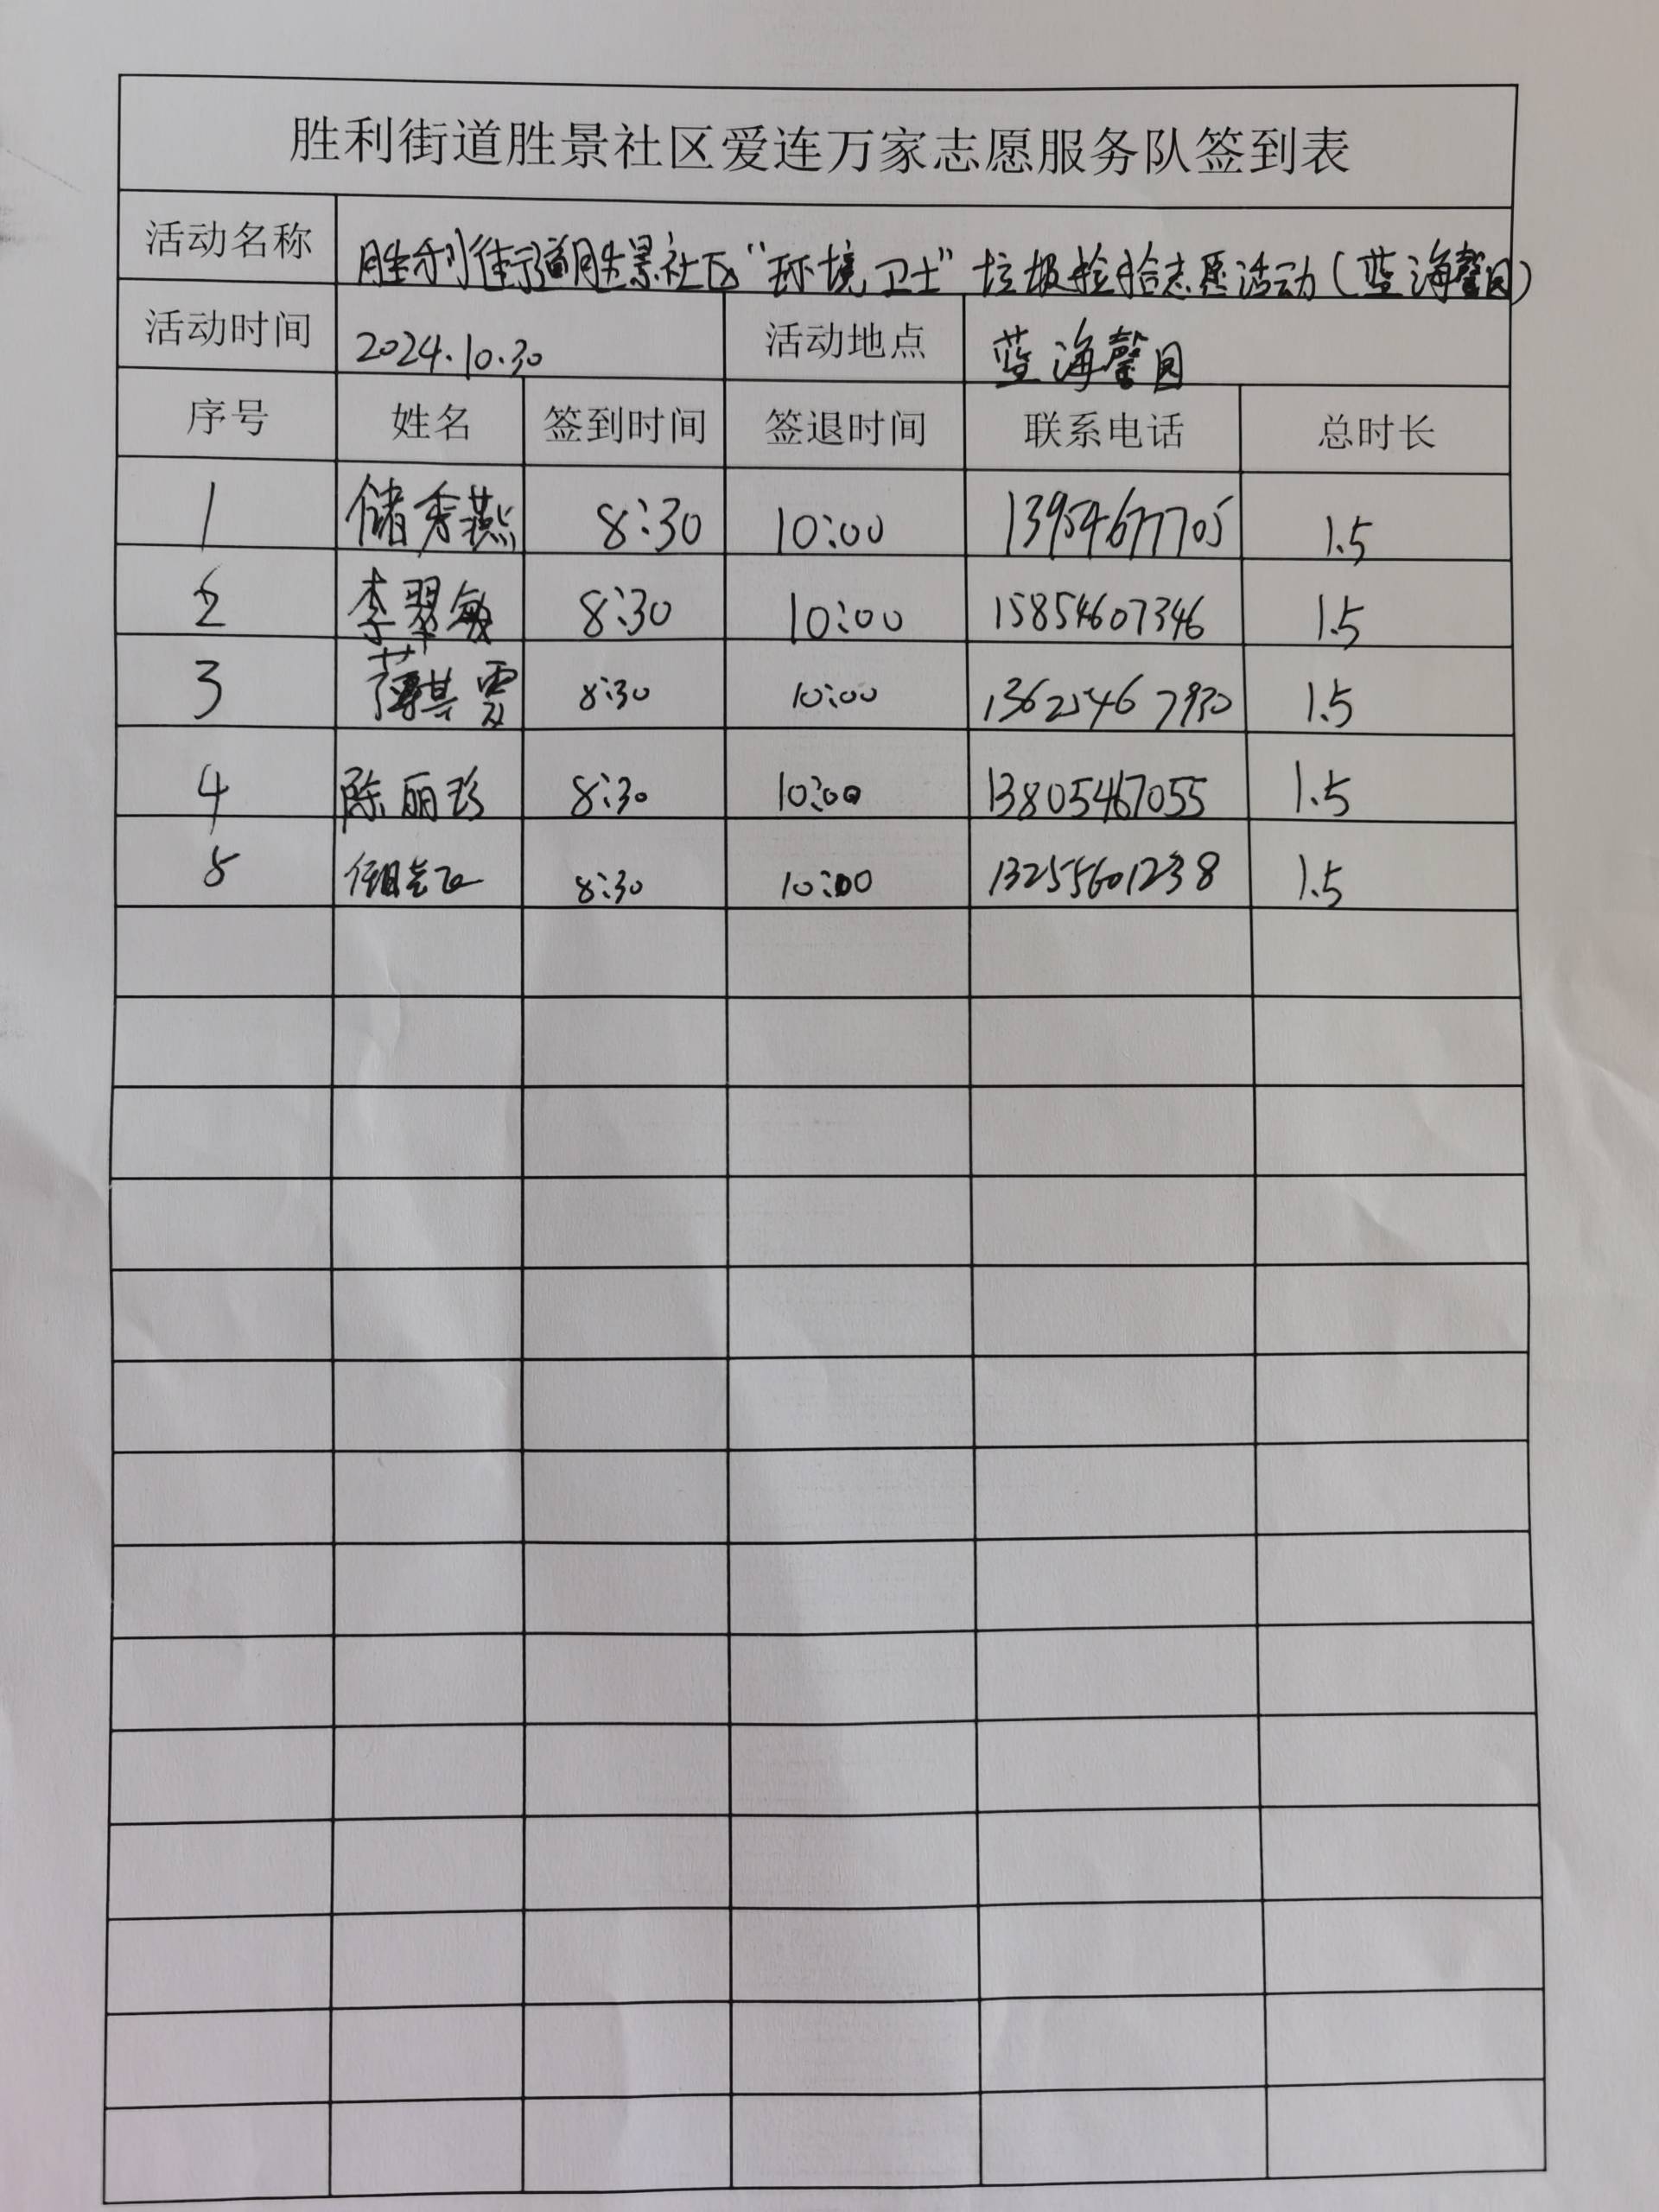 胜利街道胜景社区爱连万家志愿服务队签到表
活动名称 胜利街道胜景社区“环境卫士”垃圾捡拾志愿活动(蓝海馨园)
活动时间 2024.10.30 活动地点 蓝海馨园
序号 姓名 签到时间 签退时间 联系电话 总时长
1 储秀燕 8:30 10:00 13954677705 1.5
2 李翠敏 8:30 10:00 15854607346 1.5
3 薄其霞 8:30 10:00 1.5
4 陈丽珍 8:30 10:00 13805467055 1.5
5 8:30 10:00 13255601238 1.5